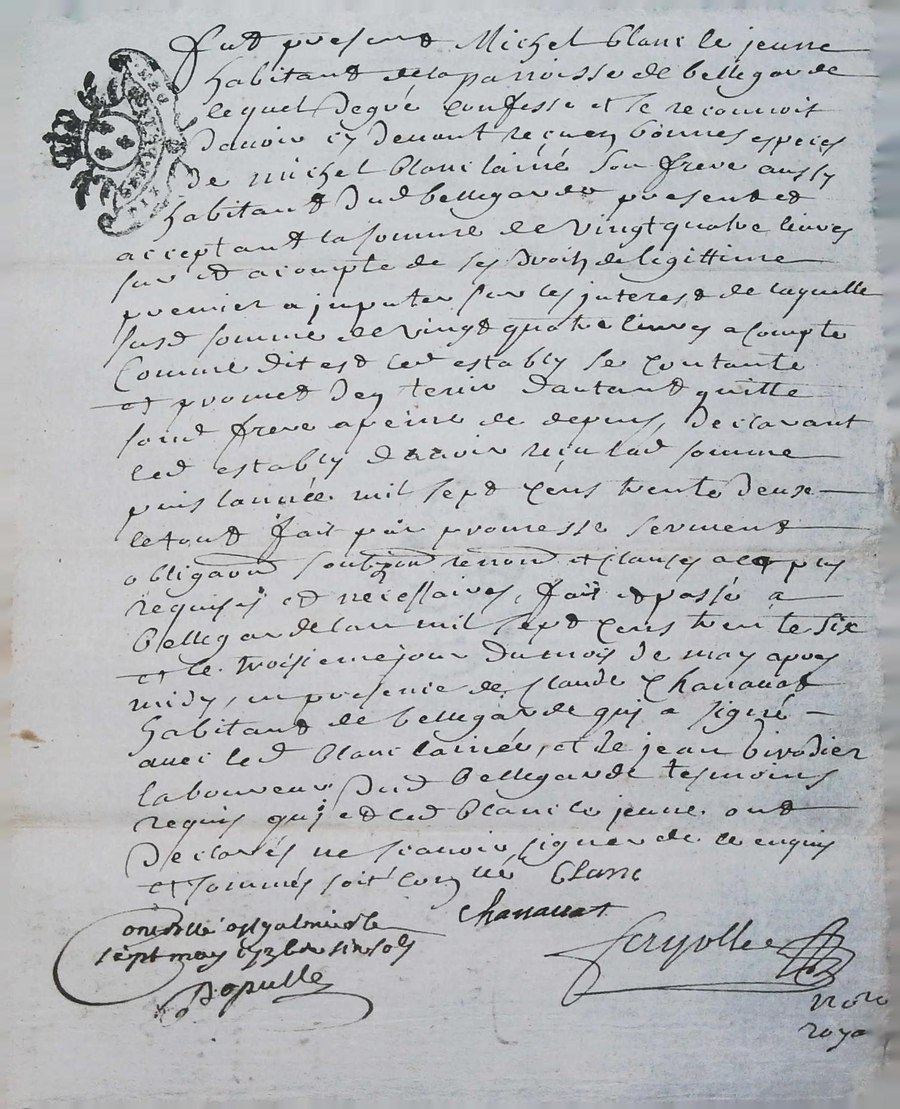 Fut present Michel blanc le jeune
habitant de la parroisse de bellegarde
lequel de gré confesse et le reconnoit
davoir cy devant reçu en bonnes especes
de michel blanc lainé son frere aussy
habitant dud bellegarde present et
acceptant la somme de vingt quatre livres
sur et acompte de ses droits de legittime
premier a imputer sur les interest de laquelle
susd somme de vingt quatre livres a compte
Comme dit est led estably se contante
et promet den tenir dautant quitte
sond frere a peine de depens, declarant
led estably davoir reçu lad somme
puis lannée mil sept cens trente deux
le tout fait par promesse serment
obligaon renon et clauses a ce plus
requises et necessaires, fait et passé a
bellegarde lan mil sept cens trente six
et le troisieme jour du mois de may apres
midy, en presence de Claude Chanauat
habitant de bellegarde qui a signé
avec led blanc lainée, et de jean
laboureur dud bellegarde tesmoins
requis qui et led blanc le jeune ont
declarés ne scavoir signer de ce enquis
et sommés soit con̄lé blanc
chanauat
controllé a st galmier le
sept may
Populle
no͞re
royal